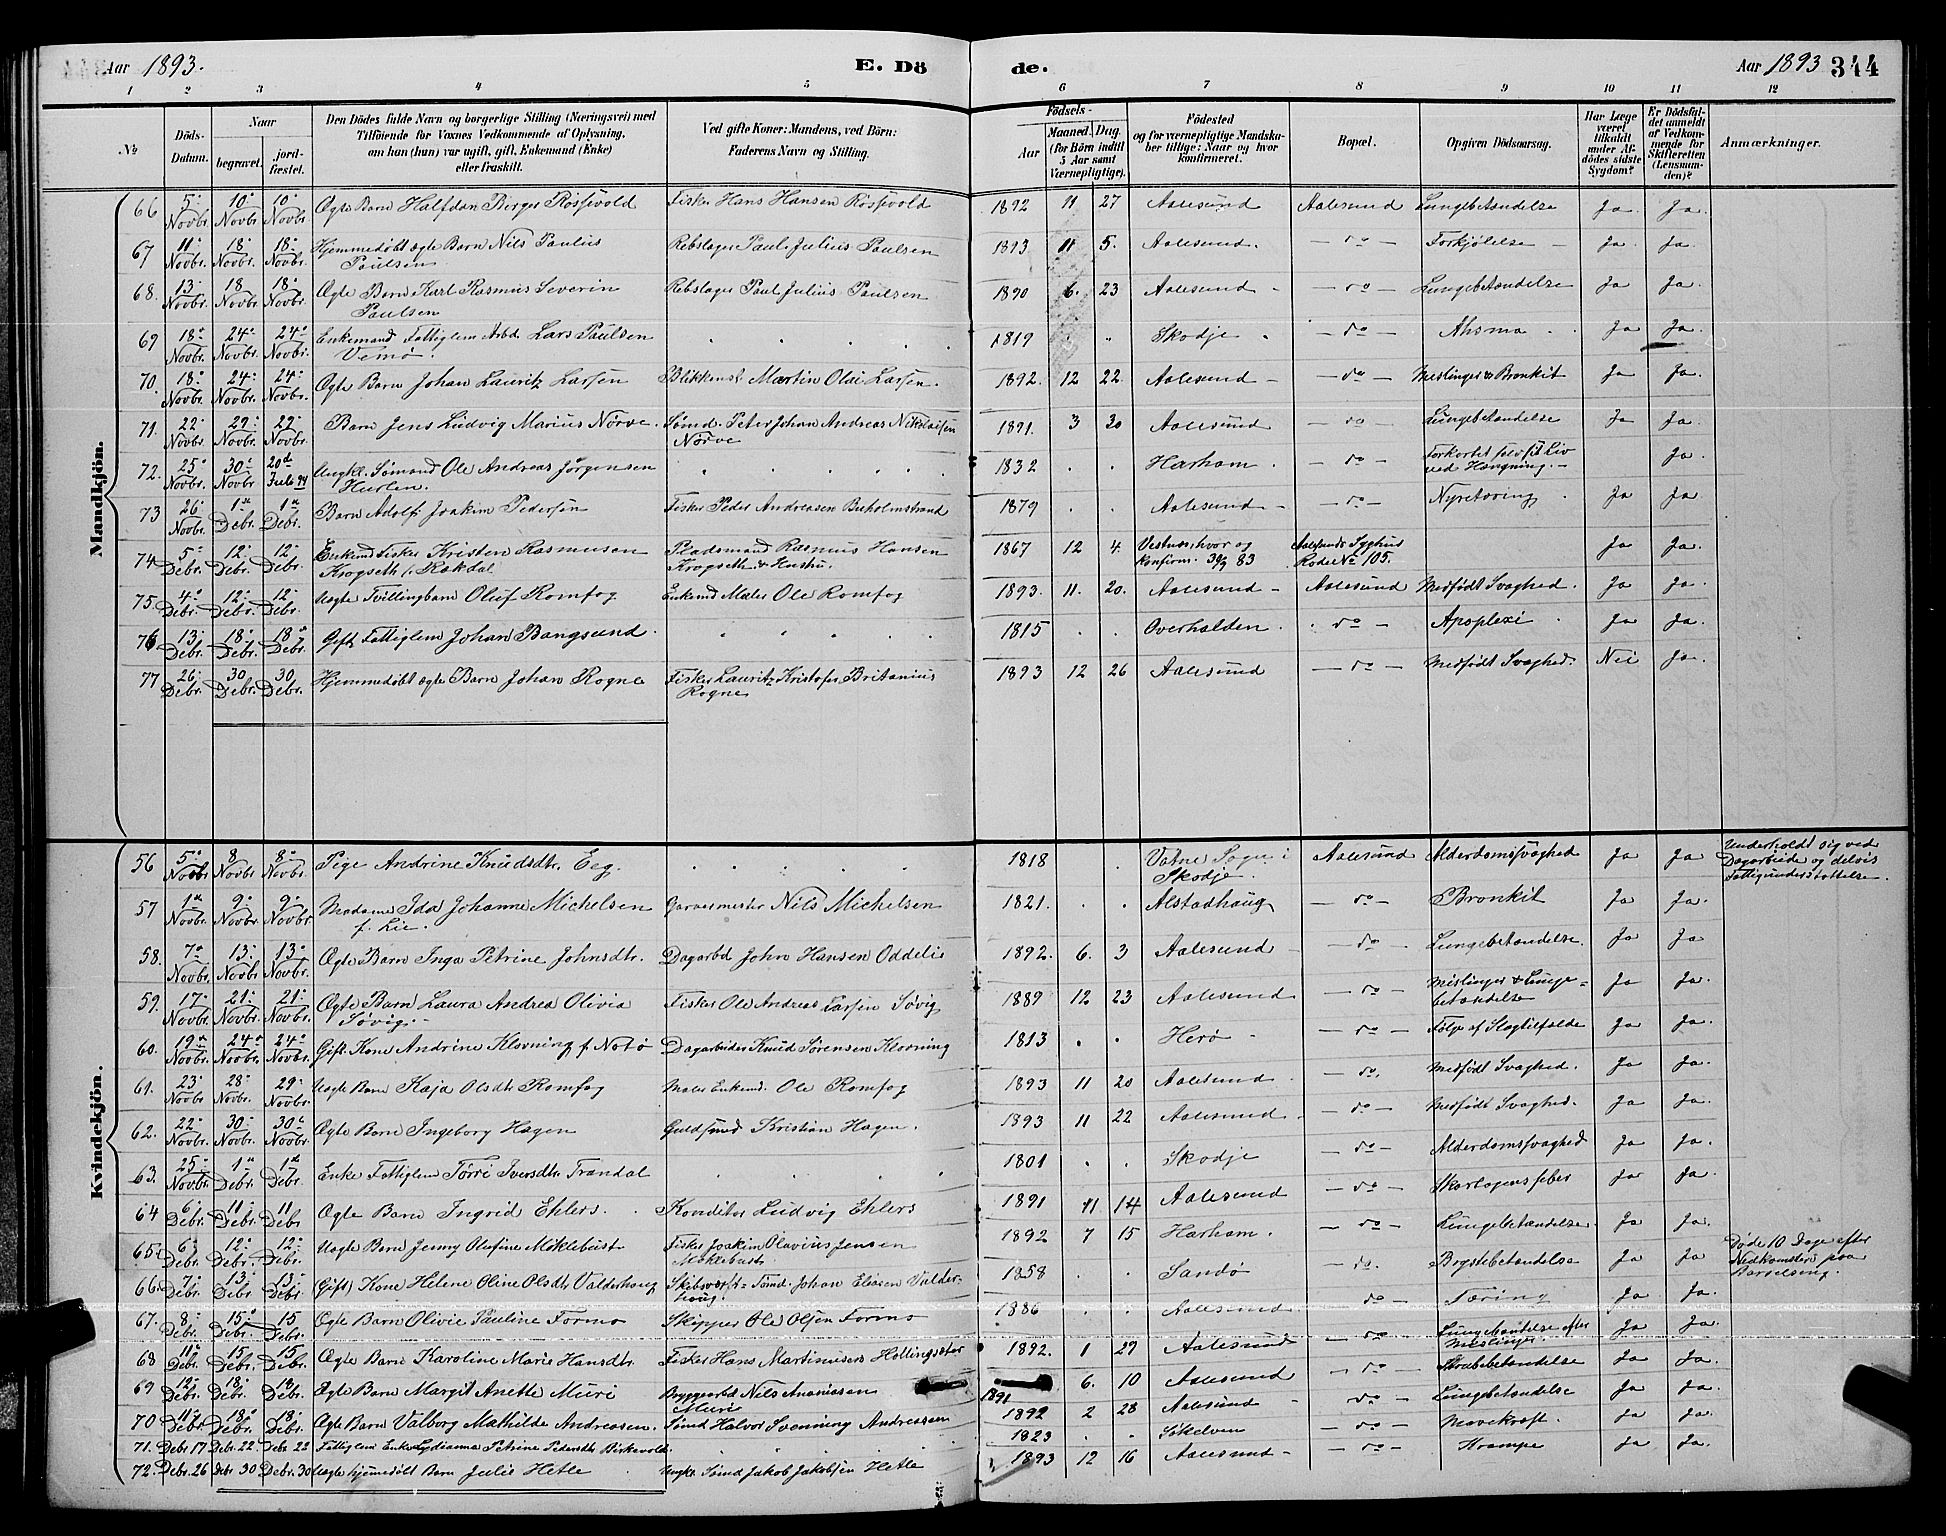 Aar 1893.
E. Dö
de.
Aar 1893
344
1 2 3 4 5 6 7 8 9 10 11 12
№
Döds-Datum.
Naar
begravet.
jord-fæstet.
Den Dödes fulde Navn og borgerlige Stilling (Næringsvei) med
Tilföiende for Voxnes Vedkommende af Oplysning,
om han (hun) var ugift, gift, Enkemand (Enke)
eller fraskilt.
Ved gifte Koner: Mandens, ved Börn:
Faderens Navn og Stilling.
Födsels-
Aar
Maaned. Dag.
(for Börn indtil
5 Aar samt
Værnepligtige).
Födested
og for værnepligtige Mandska-
ber tillige: Naar og hvor
konfirmeret.
Bopæl.
Opgiven Dödsaarsag.
Har Læge
været
tilkaldt
under Af-
dödes sidste
Sygdom?
Er Dödsfal-
det anmeldt
af Vedkom-
mende for
Skifteretten
(Lensman-
den)?
Anmærkninger.
Mandkjön.
66 5 Novbr. 10 Novbr. 10 Novbr. Ægte Barn Halfdan Birger Rössvold Fisker Hans Hansen Rössvold 1892 11 27 Aalesund Aalesund Lungebetændelse Ja Ja
67 11 Novbr. 18 Novbr. 18 Novbr. Hjemmedöbt ægte Barn Nils Paulius Paulsen Rebslager Paul Julius Paulsen 1893 11 5. Aalesund. do Forkjölelse Ja Ja
68. 13 Novbr. 18 Novbr. 18 Novbr. Ægte Barn Karl Rasmus Severin Paulsen Rebslager Paul Julius Paulsen 1890 6. 23 Aalesund do Lungebetændelse Ja Ja
69 18 Novbr. 24 Novbr. 24 Novbr. Enkemand Fattiglem Arbd. Lars Paulsen Vemö. 1819 Skodje do Ahsma Ja Ja
70. 18 Novbr. 24 Novbr. 24 Novbr. Ægte Barn Johan Lauritz Larsen Blikkensl. Martin Olai Larsen. 1892. 12 22. Aalesund do Meslinger & Bronkit Ja Ja
71. 22 Novbr. 29 Novbr. 29 Novbr. Barn Jens Ludvig Marius Nörve. Sömd. Peter Johan Andreas Nikolaisen Nörve 1891. 3 30 Aalesund do Lungebetændelse Ja Ja
72. 25 Novbr. 30 Novbr 20de 94 Ungkl. Sömand Ole Andreas Jörgensen Hurlen. 1832 Harham. do Forkortet selv sit Liv ved Hængning. Ja
73 26 Novbr. 1ste Debr. 1ste Debr. Barn Adolf Joakim Pedersen Fisker Peder Andreasen Buholmstrand 1879 Aalesund do Nyretæring Ja Ja
74 5 Debr. 12 Debr. 12 Debr. Enkemd Fisker Kristen Rasmusen Krogseth f. Rokdal Pladsmand Rasmus Hansen Krogseth & Hustru. 1867 12 4. Vestnes, hvor og konfirm. 30/9 83 Aalesunds Syghus Rode № 105. Ja Ja
75. 4 Debr. 12 Debr. 12 Debr. Uægte Tvillingbarn Oluf Romfog Enkemd Maler Ole Romfog 1893. 11. 20. Aalesund Aalesund Medfödt Svaghed. Ja Ja
76 13 Debr. 18 Debr. 18 Debr. Gift Fattiglem Johan Bangsund 1815 Overhalden. do Apoplexi Ja Ja
77 26 Debr. 30 Debr. 30 Debr. Hjemmedöbt ægte Barn Johan Rogne Fisker Lauritz Kristofer Britanius Rogne 1893 12 26 Aalesund do Medfödt Svaghed. Nei Ja
Kvindekjön.
56 5 Novbr 8 Novbr 8 Novbr Pige Andrine Knudsdtr. Eeg. 1818 Vatne Sogn i Skodje. Aalesund Alderdomssvaghed Ja Ja Underholdt sig ved Dagarbeide og delvis Fattigunderstøttelse.
57 1ste Novbr. 9 Novbr. 9 Novbr. Madame Ida Johanne Michelsen f. Lie. Garvermester Nils Michelsen 1821. Alstadhaug do Bronkit Ja Ja
58. 7 Novbr. 13 Novbr. 13 Novbr. Ægte Barn Inga Petrine Johnsdtr. Dagarbd John Hansen Oddelie 1892. 6. 3 Aalesund do Lungebetændelse. Ja Ja
59. 17 Novbr. 21 Novbr. 21 Novbr. Ægte Barn Laura Andrea Olivia Sövig. Fisker Ole Andreas Larsen Sövig 1889 12 23 Aalesund do Meslinger & Lunge-betændelse Ja Ja
60. 19 Novbr. 24 Novbr. 24 Novbr. Gift Kone Andrine Klovning f. Notö Dagarbeider Knud Sörensen Klovning 1813 Herö do Fölge af Slagtilfælde Ja Ja.
61. 23 Novbr 28 Novbr. 29 Novbr. Uægte Barn Kaja Olsdtr Romfog Maler Enkemd. Ole Romfog 1893 11 20 Aalesund. do. Medfödt Svaghed. Ja Ja.
62. 22 Novbr. 30 Novbr. 30 Novbr. Ægte Barn Ingeborg Hagen Guldsmed Kristian Hagen. 1893 11 22 Aalesund do Medfödt Svaghed. Ja Ja
63. 25 Novbr. 1ste Debr. 1ste Debr. Enke Fattiglem Törri Iversdtr. Trandal 1801 Skodje do Alderdomssvaghed Ja Ja.
64 6 Debr. 11 Debr. 11 Debr Ægte Barn Ingrid Ehlers. Konditor Ludvig Ehlers 1891 11 14 Aalesund do Skarlagensfeber Ja Ja
65. 6 Debr. 12 Debr. 12 Debr. Uægte Barn Jenny Olufine Möklebust Fisker Joakim Olavius Jensen Möklebust 1892 7 15 Harham. do Lungebetændelse. Ja Ja.
66. 7 Debr. 13 Debr. 13 Debr. Gift Kone Helene Oline Olsdtr Valderhaug Skibsværft- Tömd. Johan Eliasen Valder-haug. 1858 Sandö do. Brystbetændelse Ja Ja Döde 10 Dage efter Nedkomsten paa Barselseng.
67. 8 Debr. 15 Debr. 15 Debr. Ægte Barn Olivie Pauline Formo Skipper Ole Olsen Formo 1886 Aalesund do Tæring Ja Ja.
68 11 Debr. 15 Debr. 15 Debr. Ægte Barn Karoline Marie Hansdtr. Fisker Hans Martinusen Hellingsæter 1892. 1 29 Aalesund do Lungebetændelse efter Meslinger Ja Ja.
69 12 Debr. 18 Debr. 18 Debr. Ægte Barn Margit Anette Muri Bryggearbd Nils Ananiassen Muri 1891 6. 10 Aalesund do Ja Ja.
70 11 Debr. 18 Debr. 18 Debr. Ægte Barn Valborg Mathilde Andreasen. Sömd Halvor Svenning Andreassen 1892 2 28 Aalesund do Lungebetændelse Ja Ja.
71. Debr 17 Debr. 22. Debr 22 Fattiglem Enke Lydianna Petrine Pedersdtr Birkevold. 1823 Sökelven do Mavekræft. Ja Ja.
72. Debr. 26 Debr 30 Debr. 30 Uægte hjemmedöbt Barn Julie Hetle Ungkr. Sömd Jakob Jakobsen Hetle 1893 12 16 Aalesund do Krampe Ja Ja.